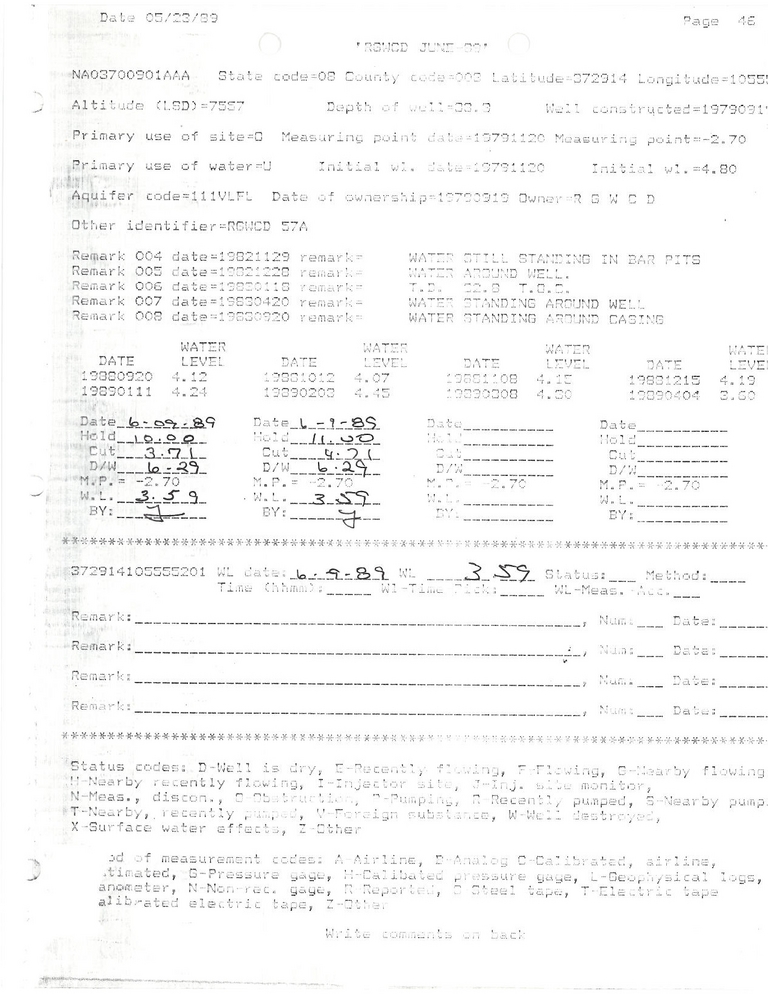 Date 05/23/89 Page 46
"RGWCD JUNE-89"
NA03700901AAA State code=08 County code=003 Latitude=372914 Longitude=10555
Altitude (LSD)=7557 Depth of well= Well constructed=19790919
Primary use of site=O Measuring point date=19791120 Measuring point=-2.70
Primary use of water=U Initial wl. date=19791120 Initial wl.=4.80
Aquifer code=111VLFL Date of ownership=19790919 Owner=R G W C D
Other identifier=RGWCD 57A
Remark 004 date=19821129 remark= WATER STILL STANDING IN BAR PITS
Remark 005 date=19821228 remark= WATER AROUND WELL.
Remark 006 date=19830118 remark= T.D.
Remark 007 date=19830420 remark= WATER STANDING AROUND WELL
Remark 008 date=19830920 remark= WATER STANDING AROUND CASING
WATER WATER WATER WATE
DATE LEVEL DATE LEVEL DATE LEVEL DATE LEVE
19880920 4.12 19881012 4.07 19881108 19881215 4.19
19890111 4.24 19890203 4.45 19890404 3.60
Date 6-09-89 Date 6-9-89 Date Date
Hold 10.00 Hold 11.00 Hold Hold
Cut 3.71 Cut 4.71 Cut Cut
D/W 6.29 D/W 6.29 D/W D/W
M.P.= -2.70 M.P.= -2.70 M.P.= -2.70 M.P.= -2.70
W.L. 3.59 W.L. 3.59 W.L. W.L.
BY: J BY: J BY: BY:
372914105555201 WL date: 6-9-89 WL 3.59 Status: Method:
Time (hhmm): WL-Time WL-Meas. Acc.
Remark: , Num: Date:
Remark: , Num: Date:
Remark: , Num: Date:
Remark: , Num: Date:
Status codes: D-Well is dry, E-Recently flowing, F-Flowing, G-Nearby flowing
H-Nearby recently flowing, I-Injector site, J-Inj. site monitor,
N-Meas., discon., O-Obstruction, P-Pumping, R-Recently pumped, S-Nearby pump.
T-Nearby, recently pumped, V-Foreign substance, W-Well destroyed,
X-Surface water effects, Z-Other
od of measurement codes: A-Airline, B-Analog C-Calibrated, airline,
timated, G-Pressure gage, H-Calibated pressure gage, L-Geophysical logs,
anometer, N-Non-rec. gage, R-Reported, S Steel tape, T-Electric tape
alibrated electric tape, Z-Other
Write comments on back